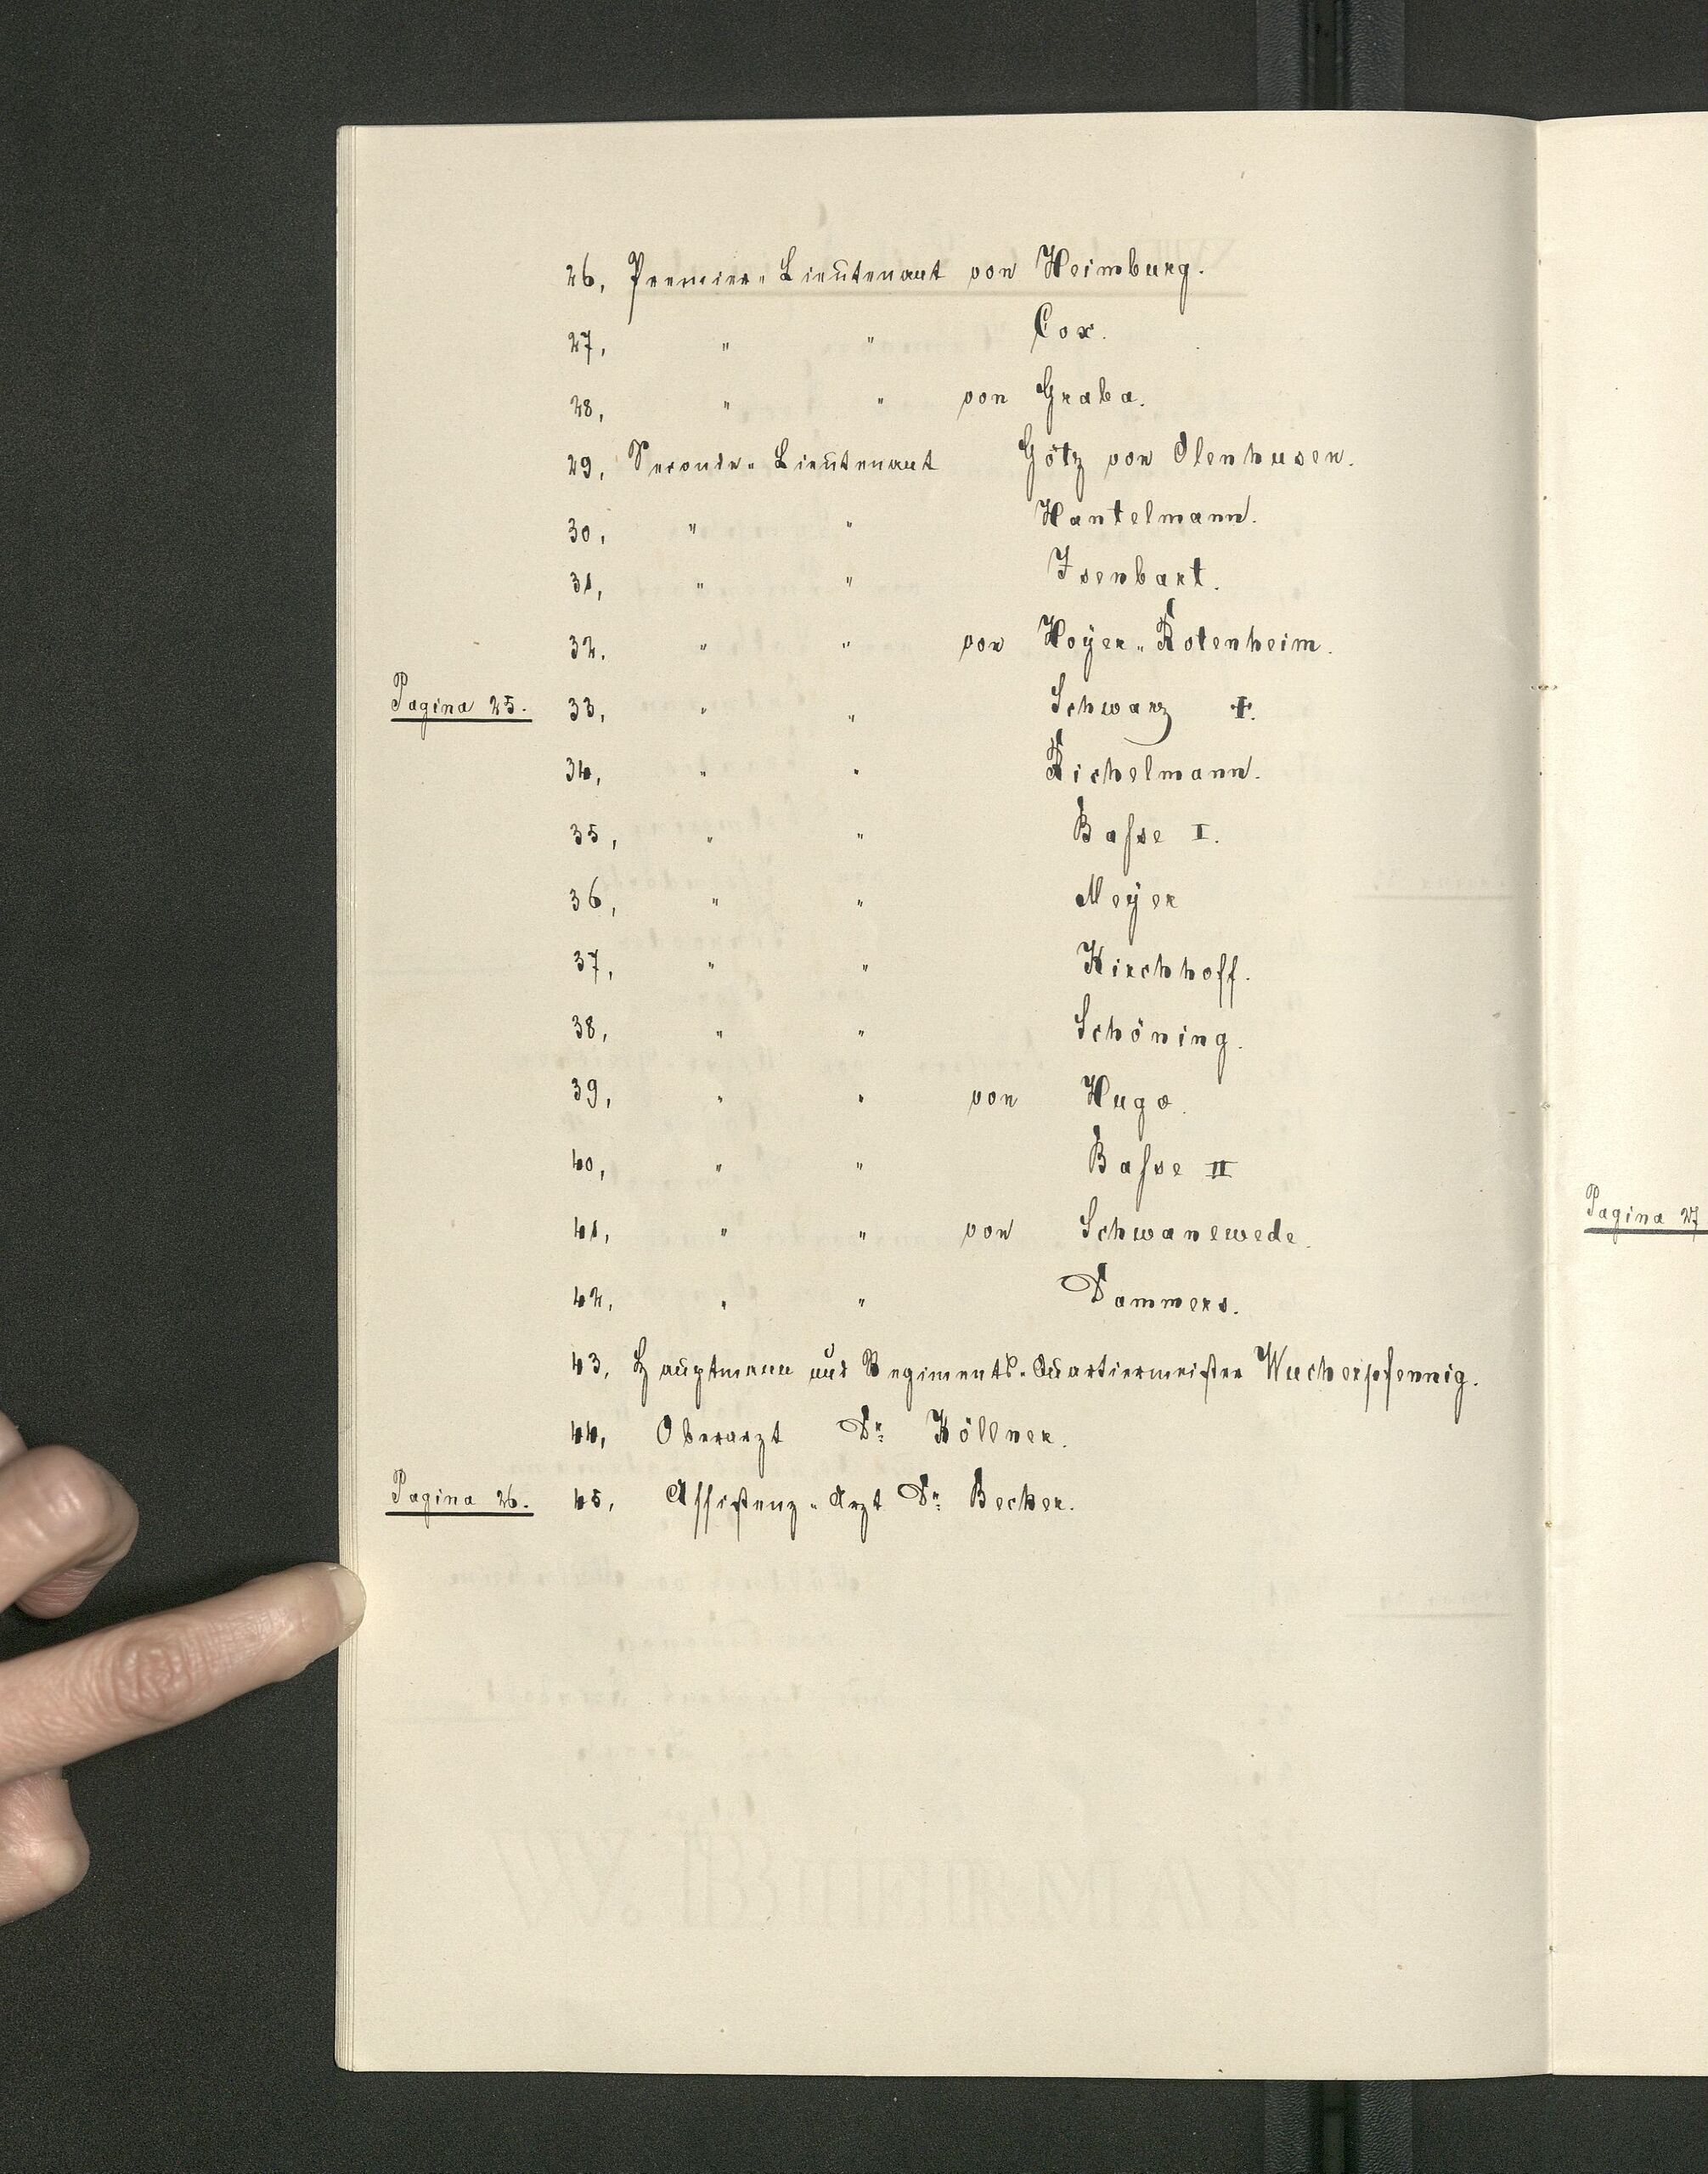 26, Premier-Lieutenant von Heimburg.
27, " " Cox.
28, " " von Graba.
29, Seconde-Lieutenant Götz von Olenhusen.
30, " " Hantelmann.
31, " " Isenbart.
32. " " von Hoÿer-Rotenheim.
Pagina 25. 33, " " Schwarz †.
34, " " Richelmann.
35, " " Baſse I.
36, " " Meÿer
37, " " Kirchhoff.
38, " " Schöning.
39, " " von Hugo.
40, " " Baſse II
41, " " von Schwanewede.
42, " " Dammers.
43, Hauptmann und Regiments-Quartiermeister Wucherpfennig.
44, Oberarzt Dr. Köllner.
Pagina 26. 45, Aſſistenz-Arzt Dr. Becker.
Pagina 27